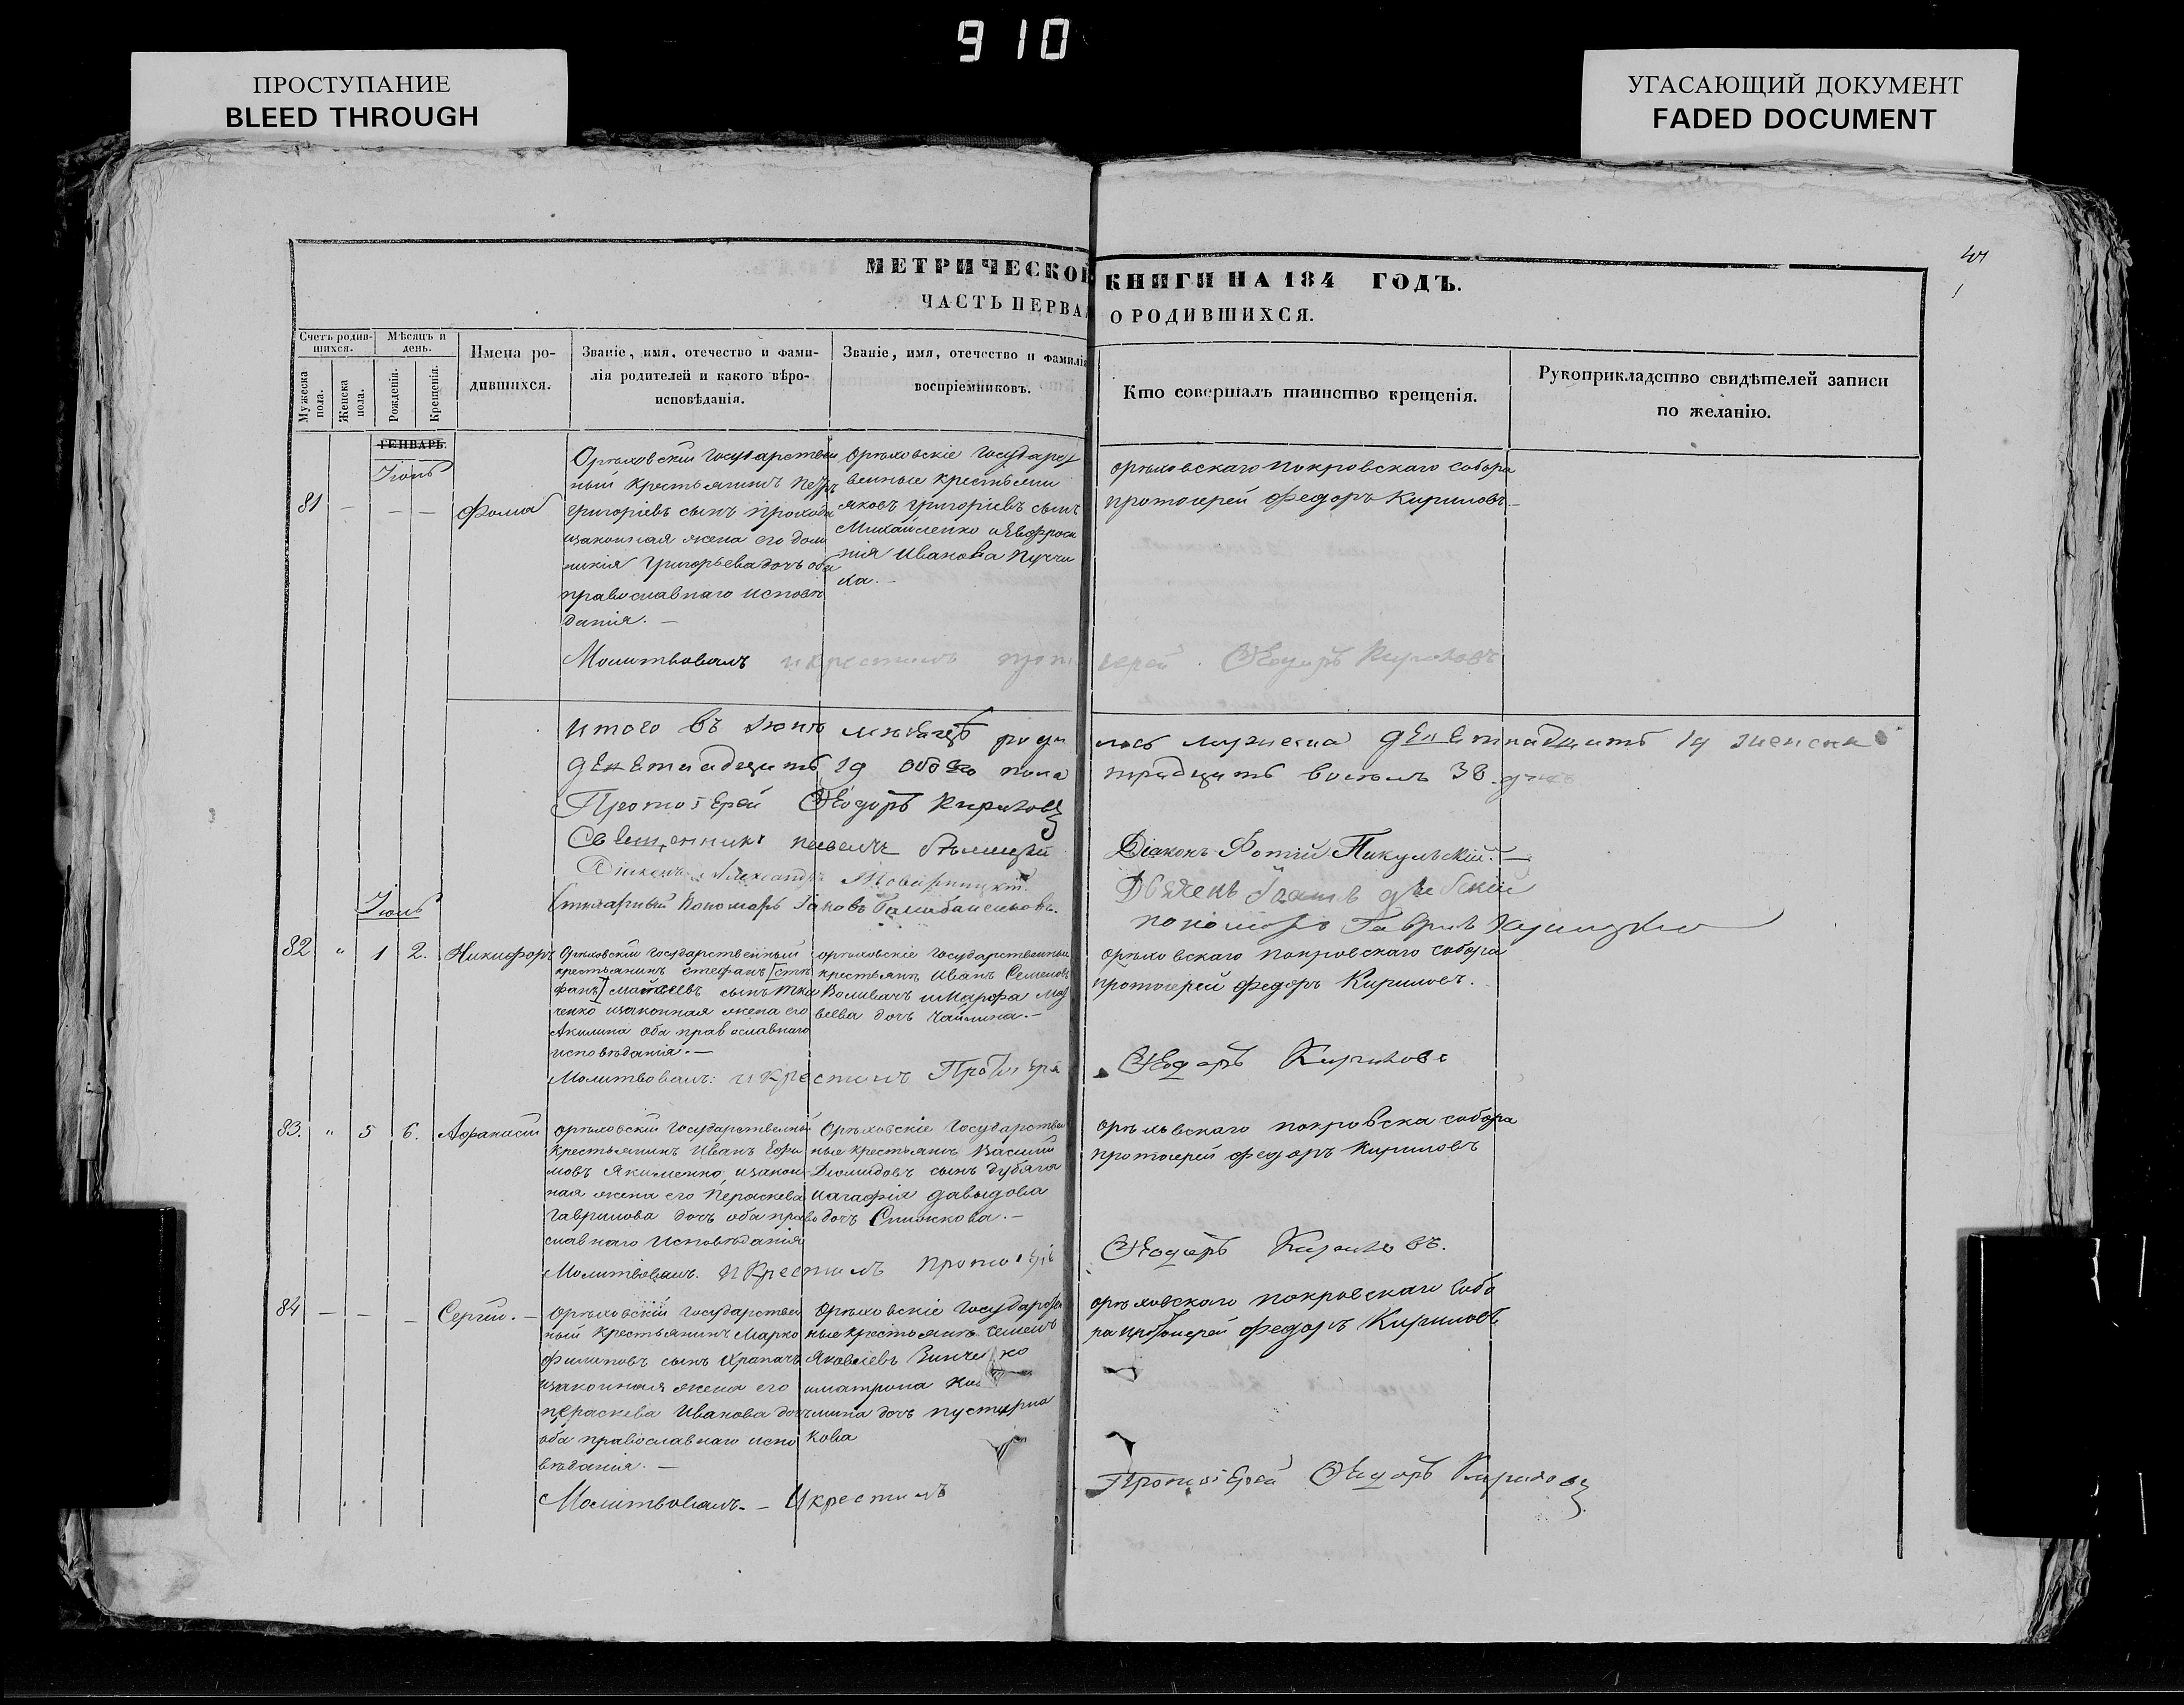 910
ПРОСТУПАНИЕ
BLEED THROUGH
УГАСАЮЩИЙ ДОКУМЕНТ
FADED DOCUMENT
МЕТРИЧЕСКОЙ КНИГИ НА 184 ГОДЪ.
ЧАСТЬ ПЕРВАЯ О РОДИВШИХСЯ.
Счетъ родив-
шихся.
Мужеска пола.
Женска пола.
Мѣсяцъ и
день.
Рожденія.
Крещенія.
Имена ро-
дившихся.
Званіе, имя, отечество и фами-
лія родителей и какого вѣро-
исповѣданія.
Званіе, имя, отечество и фамилія
воспріемниковъ.
Кто совершалъ таинство крещенія.
Рукоприкладство свидѣтелей записи
по желанію.
ГЕНВАРЬ.
Іюнь
81 — — — Фома
Орѣховскій Государствен
ный крестьянинъ Петръ
Григоріевъ сынъ Прохода
изаконная жена его Дом
никія Григорьева дочъ оба
православнаго исповѣ
данія. —
Орѣховскіе Государст
венные крестьяни
Яковъ Григоріевъ сынъ
Михайленко иЕвфроси
нія Иванова
ка. —
орѣховскаго покровскаго собора
протоіерей Федоръ Кириловъ. —
Молитвовалъ икрестилъ протоіерей Ѳеодоръ Кириловъ
итого въ Іюнѣ мѣсяцѣ роди лось мужеска девятнадцять 19 женска
девятнадцять 19 обоего пола тридцять восемь 38
Протоіерей Ѳеодоръ Кириловъ
Священникъ павелъ
Діаконъ Александръ
Діаконъ Фотій Пикульскій. —
Пономарь Іаковъ
пономарь Гавріилъ
Іюль
82 " 1 2. Никифоръ
Орѣховскій Государственный
крестьянинъ Стефанъ [сте
фанъ] Матвеевъ сынъ Тка
ченко изаконная жена его
Акилина оба православнаго
исповѣданія. —
орѣховскіе Государственные
крестьянъ Иванъ Семеновъ
Воливачъ иМарфа Мат
веева дочъ Чайлина. —
орѣховскаго покровскаго собора
протоіерей Федоръ Кириловъ.
Молитвовалъ: икрестилъ Протоіерей Ѳеодоръ Кириловъ
83. " 5 6. Афанасій
орѣховскій Государственный
крестьянинъ Иванъ Ефи
мовъ Якименко, изакон
ная жена его Пераскева
Гаврилова дочъ оба право
славнаго Исповѣданія
Орѣховскіе Государствен
ные крестьянъ Василій
Діомидовъ сынъ Дубяга
иАгафія Давыдова
дочъ —
орѣховскаго покровска собора
протоіерей Федоръ Кириловъ
Молитвовалъ. икрестилъ протоіерей Ѳеодоръ Кириловъ.
84 — — — Сергій. —
Орѣховскій Государствен
ный крестьянинъ Марко
Филиповъ сынъ Храпачъ
изаконная жена его
пераскева Иванова дочъ
оба православнаго испо
вѣданія. —
Орѣховскіе Государствен
ные крестьянъ Семенъ
Яковлевъ Зинченко
иматрона
мина дочъ
кова
орѣховскаго покровскаго собо
ра протоіерей Федоръ Кириловъ
Молитвовалъ. — Икрестилъ Протоіерей Ѳеодоръ Кириловъ